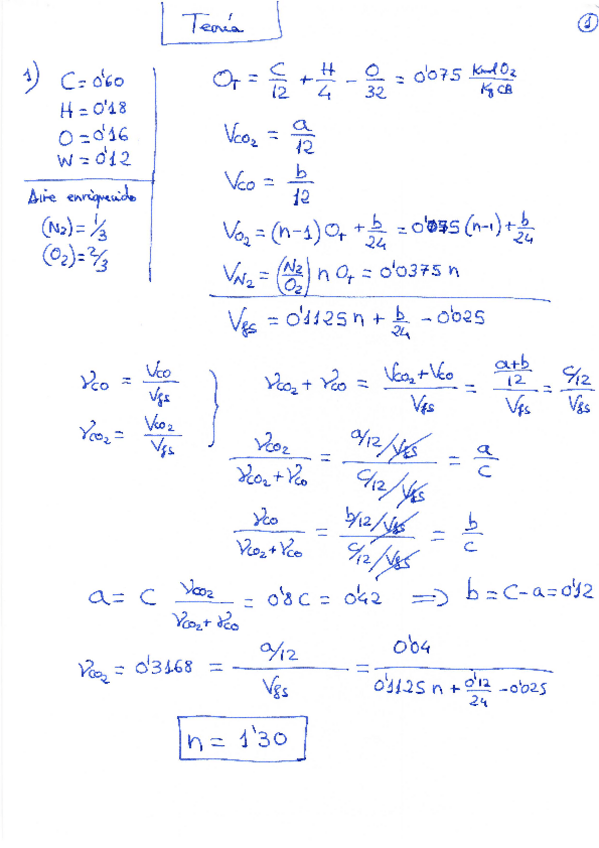 Teoría
1
1) C = 0'60
H = 0'18
O = 0'16
W = 0'12
Aire enriquecido
(N2) = 1/3
(O2) = 2/3
OT = C/12 + H/4 - O/32 = 0'075 Kmol O2/Kg CB
VCO2 = a/12
VCO = b/12
VO2 = (n-1) OT + b/24 = 0'075 (n-1) + b/24
VN2 = (N2/O2) n OT = 0'0375 n
Vgs = 0'1125 n + b/24 - 0'025
γCO = VCO/Vgs
γCO2 = VCO2/Vgs
γCO2 + γCO = (VCO2 + VCO)/Vgs = ((a+b)/12)/Vgs = (C/12)/Vgs
γCO2/(γCO2 + γCO) = (a/12/Vgs)/(C/12/Vgs) = a/C
γCO/(γCO2 + γCO) = (b/12/Vgs)/(C/12/Vgs) = b/C
a = C γCO2/(γCO2 + γCO) = 0'8 C = 0'42 => b = C - a = 0'12
γCO2 = 0'3168 = (a/12)/Vgs = 0'04/(0'1125 n + 0'12/24 - 0'025)
n = 1'30